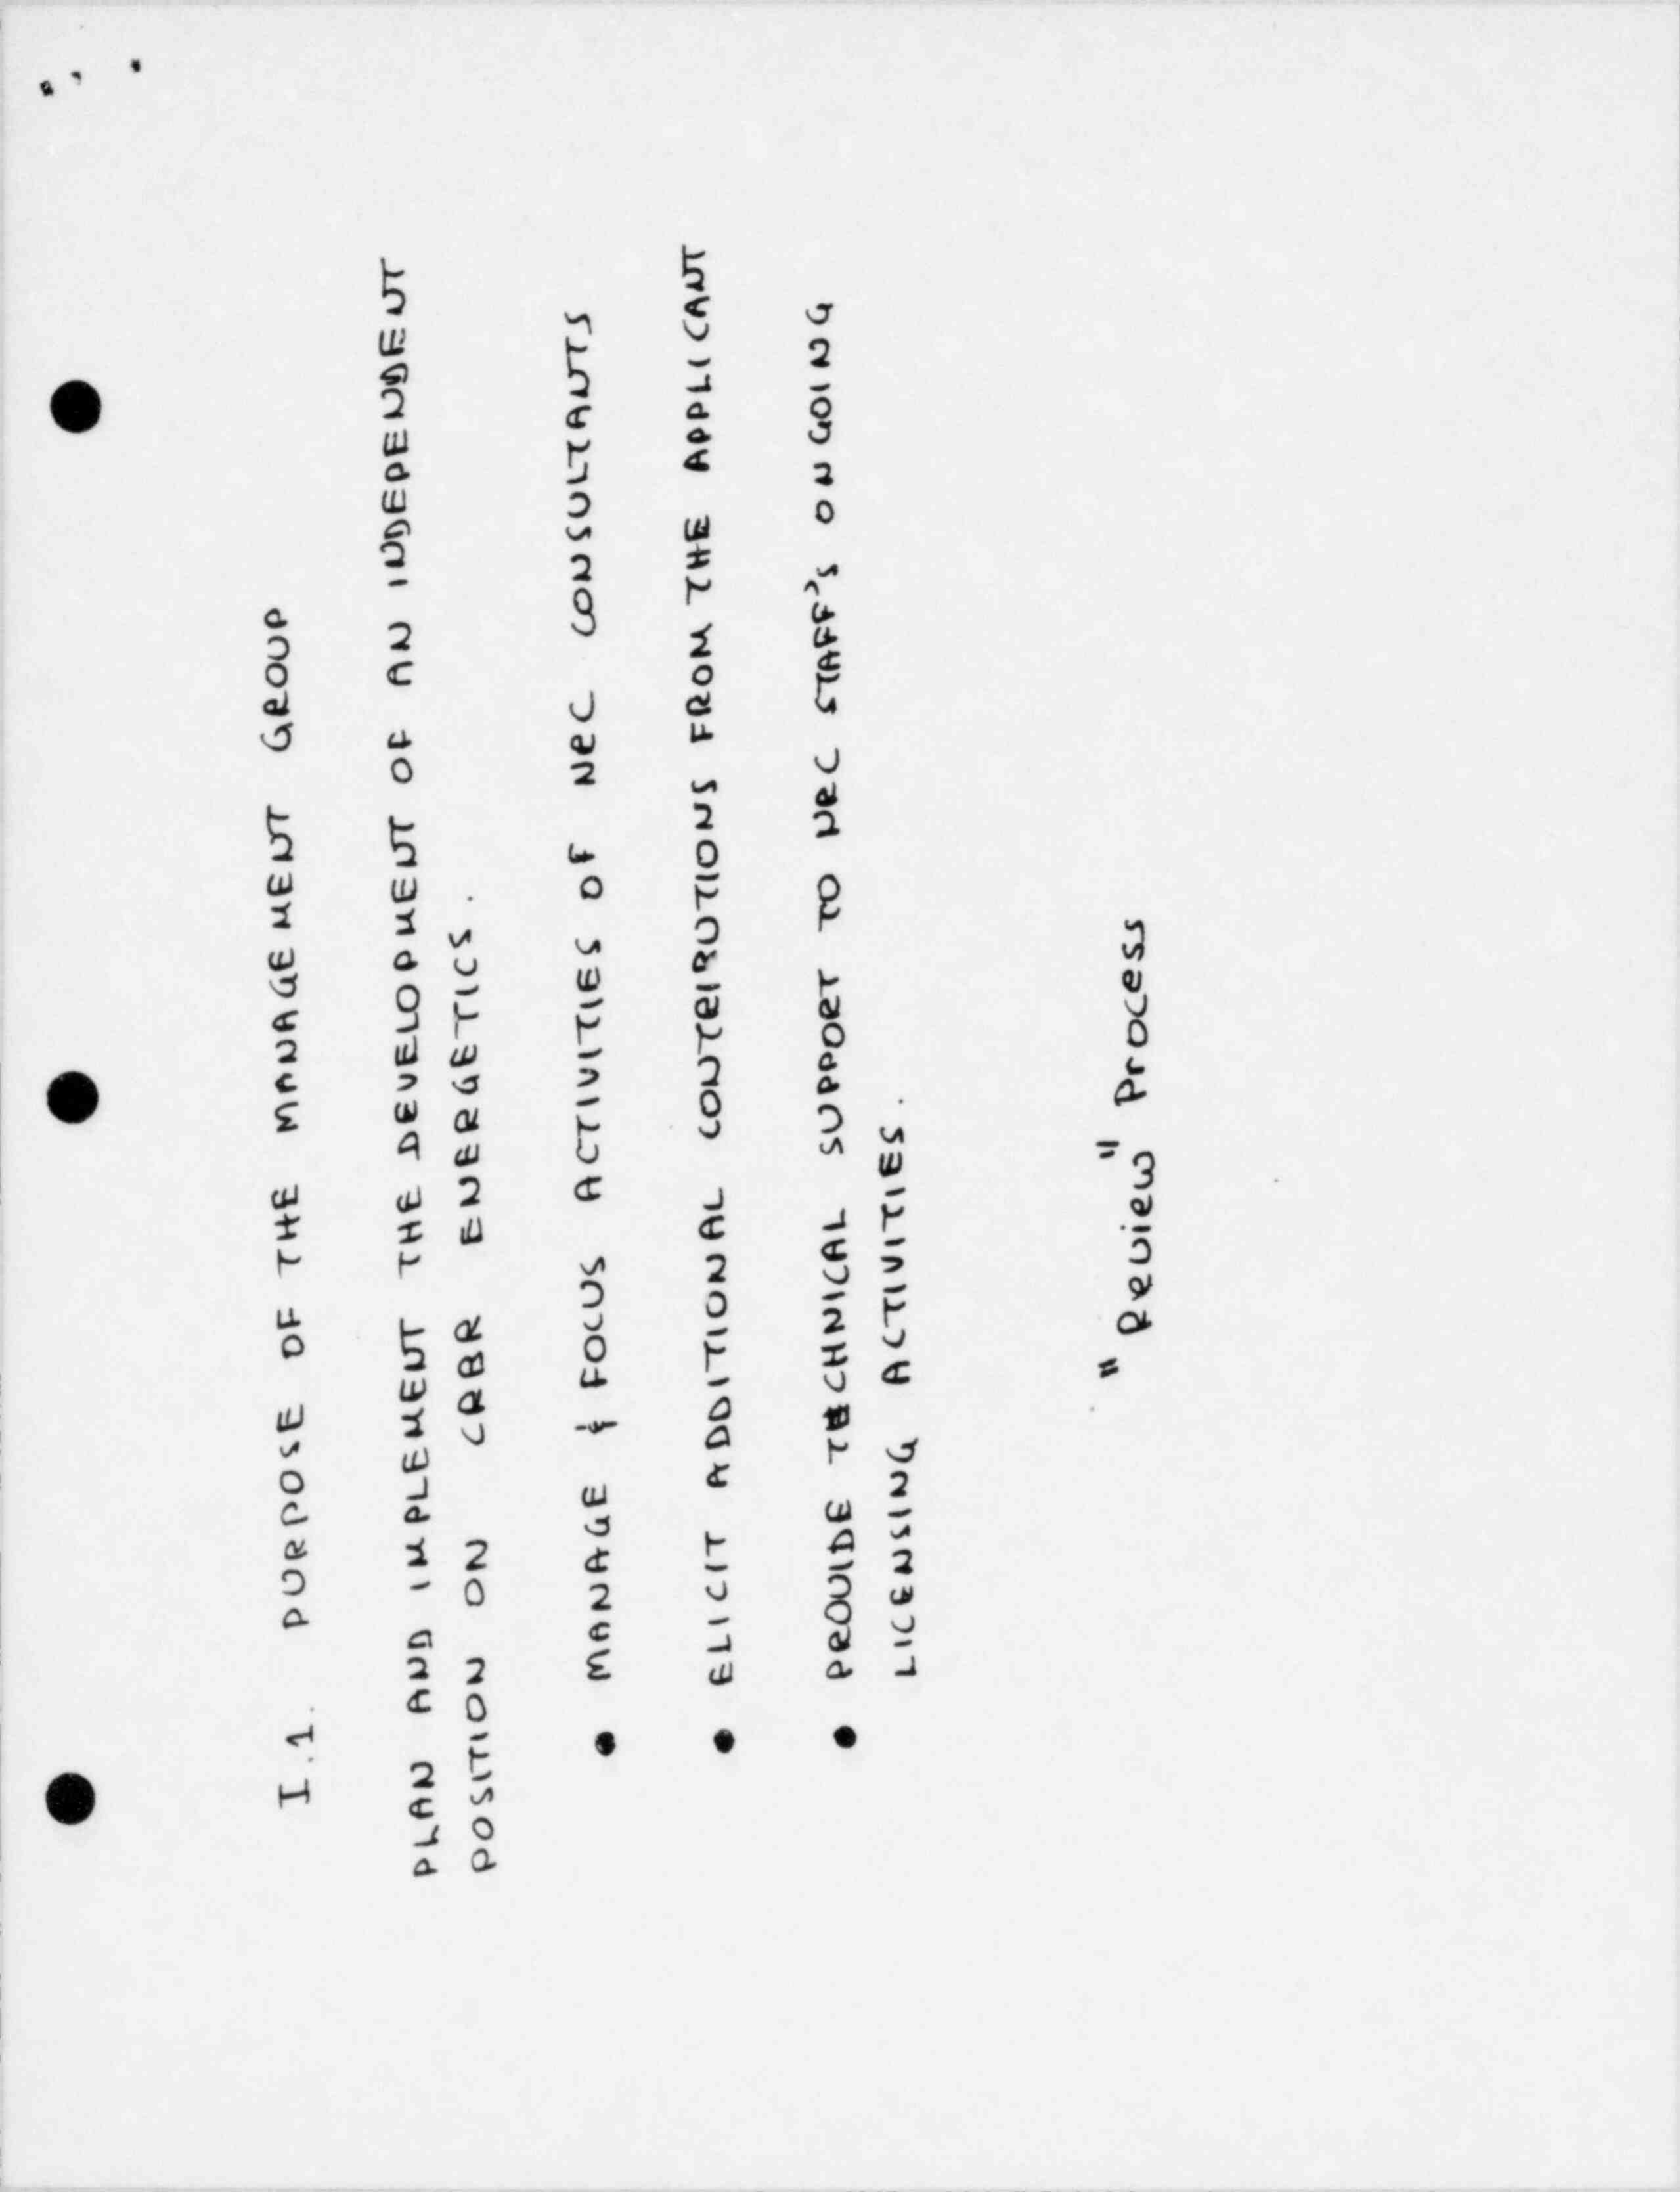 I.1. PURPOSE OF THE MANAGEMENT GROUP
PLAN AND IMPLEMENT THE DEVELOPMENT OF AN INDEPENDENT
POSITION ON CRBR ENERGETICS.
• MANAGE & FOCUS ACTIVITIES OF NRC CONSULTANTS
• ELICIT ADDITIONAL CONTRIBUTIONS FROM THE APPLICANT
• PROVIDE TECHNICAL SUPPORT TO NRC STAFF'S ONGOING
LICENSING ACTIVITIES.
"Review" Process